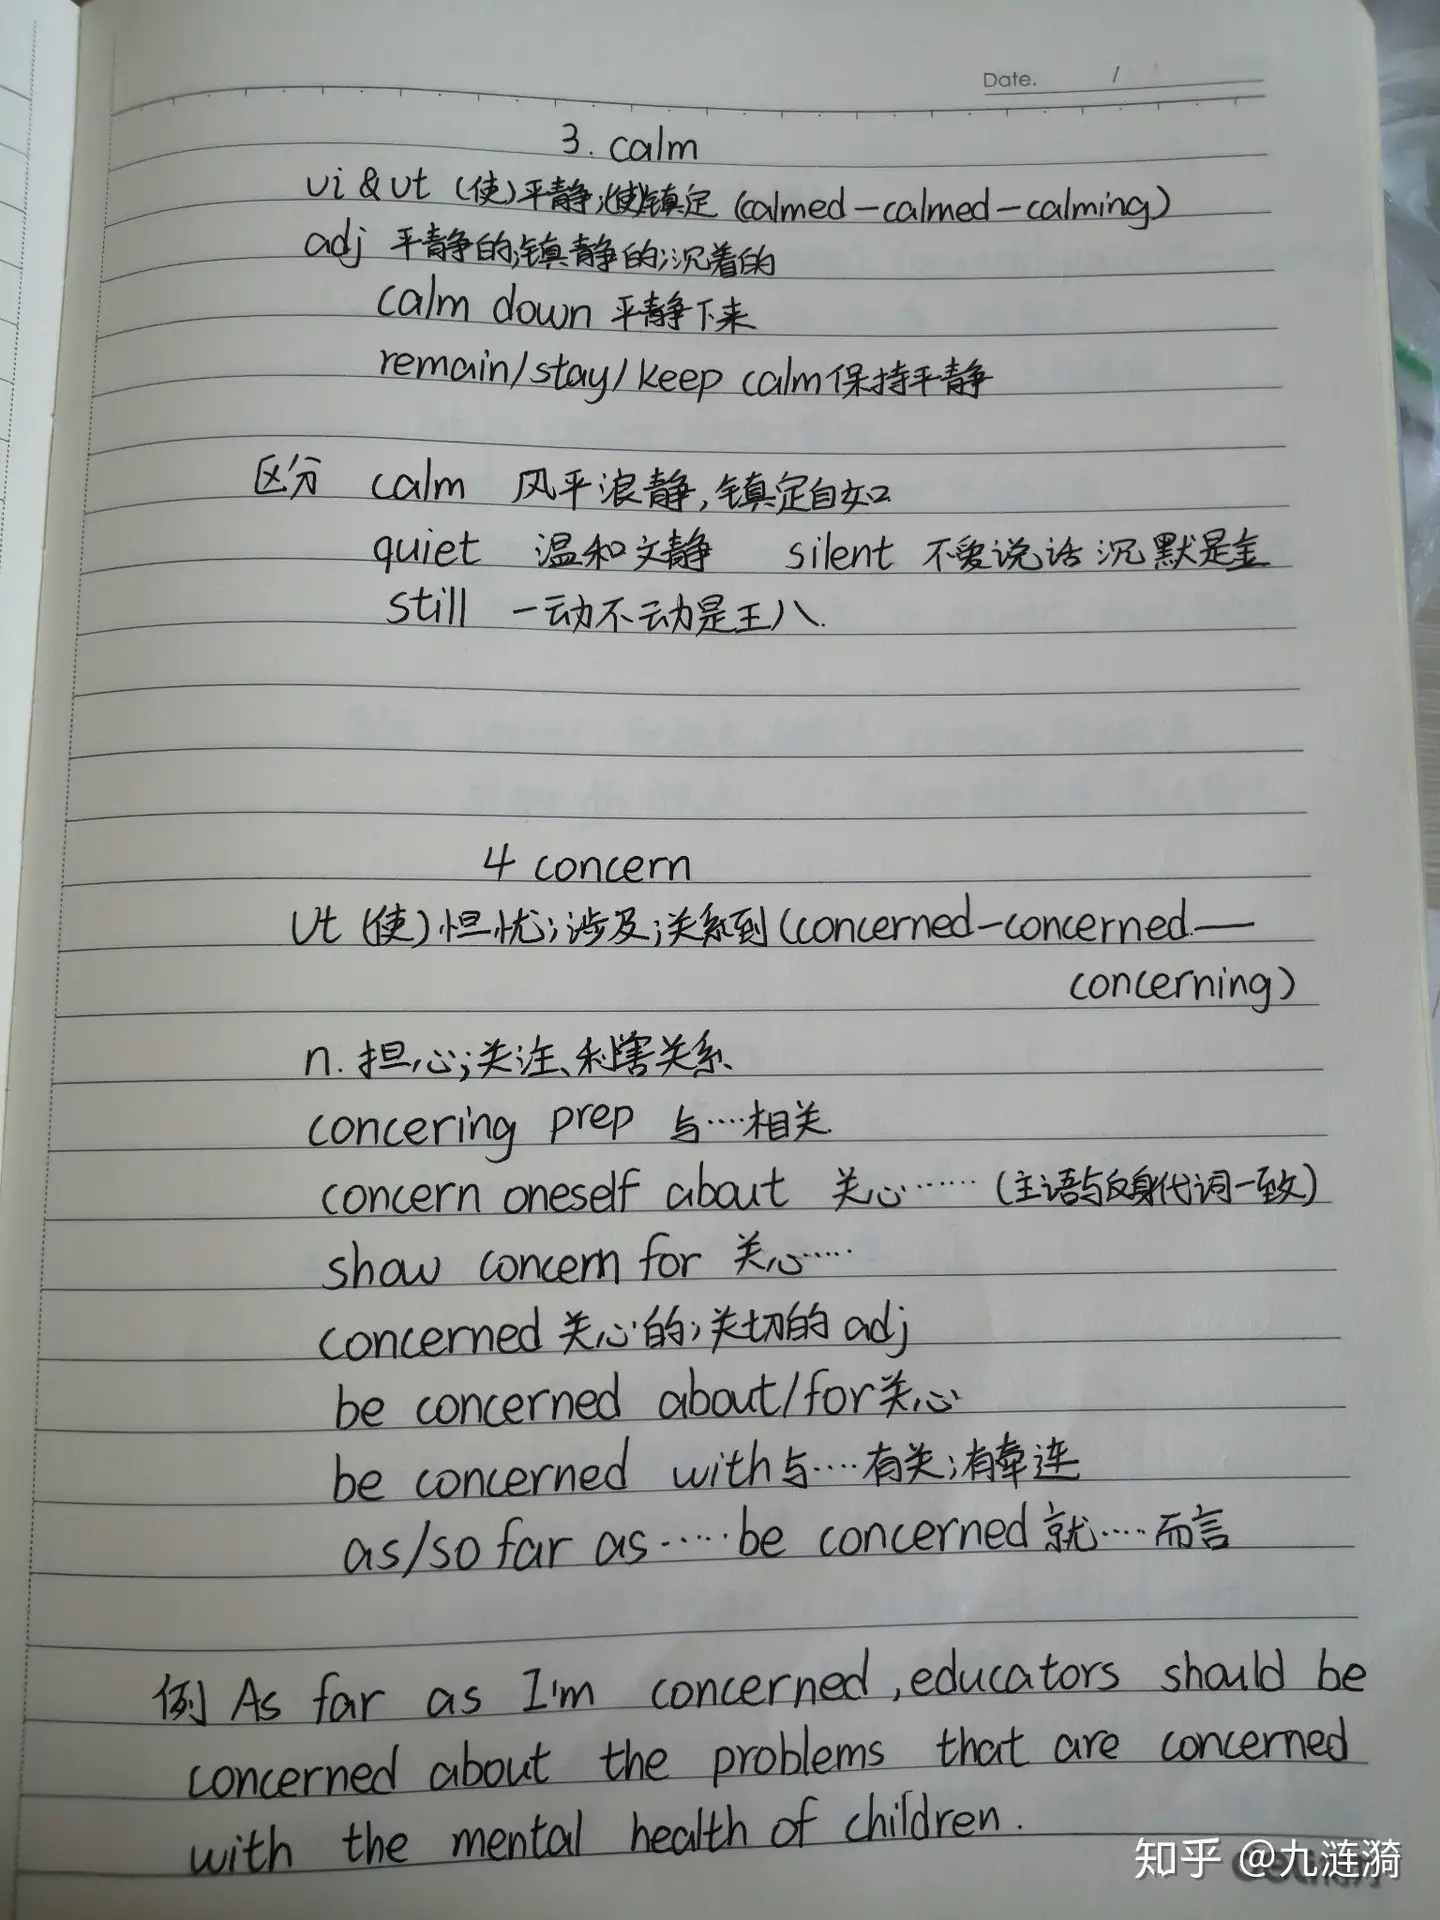 Date. /
3. calm
vi & vt (使)平静;(使)镇定 (calmed-calmed-calming)
adj 平静的;镇静的;沉着的
calm down 平静下来
remain/stay/keep calm保持平静
区分 calm 风平浪静,镇定自如
quiet 温和文静 silent 不爱说话 沉默是金
still 一动不动是王八.
4 concern
Vt (使)担忧;涉及;关系到(concerned-concerned—
concerning)
n. 担心;关注、利害关系
concering prep 与····相关
concern oneself about 关心······(主语与反身代词一致)
show concern for 关心·····
concerned 关心的;关切的 adj
be concerned about/for关心
be concerned with与····有关;有牵连
as/so far as·····be concerned 就····而言
例 As far as I'm concerned, educators should be
concerned about the problems that are concerned
with the mental health of children.
知乎 @九涟漪